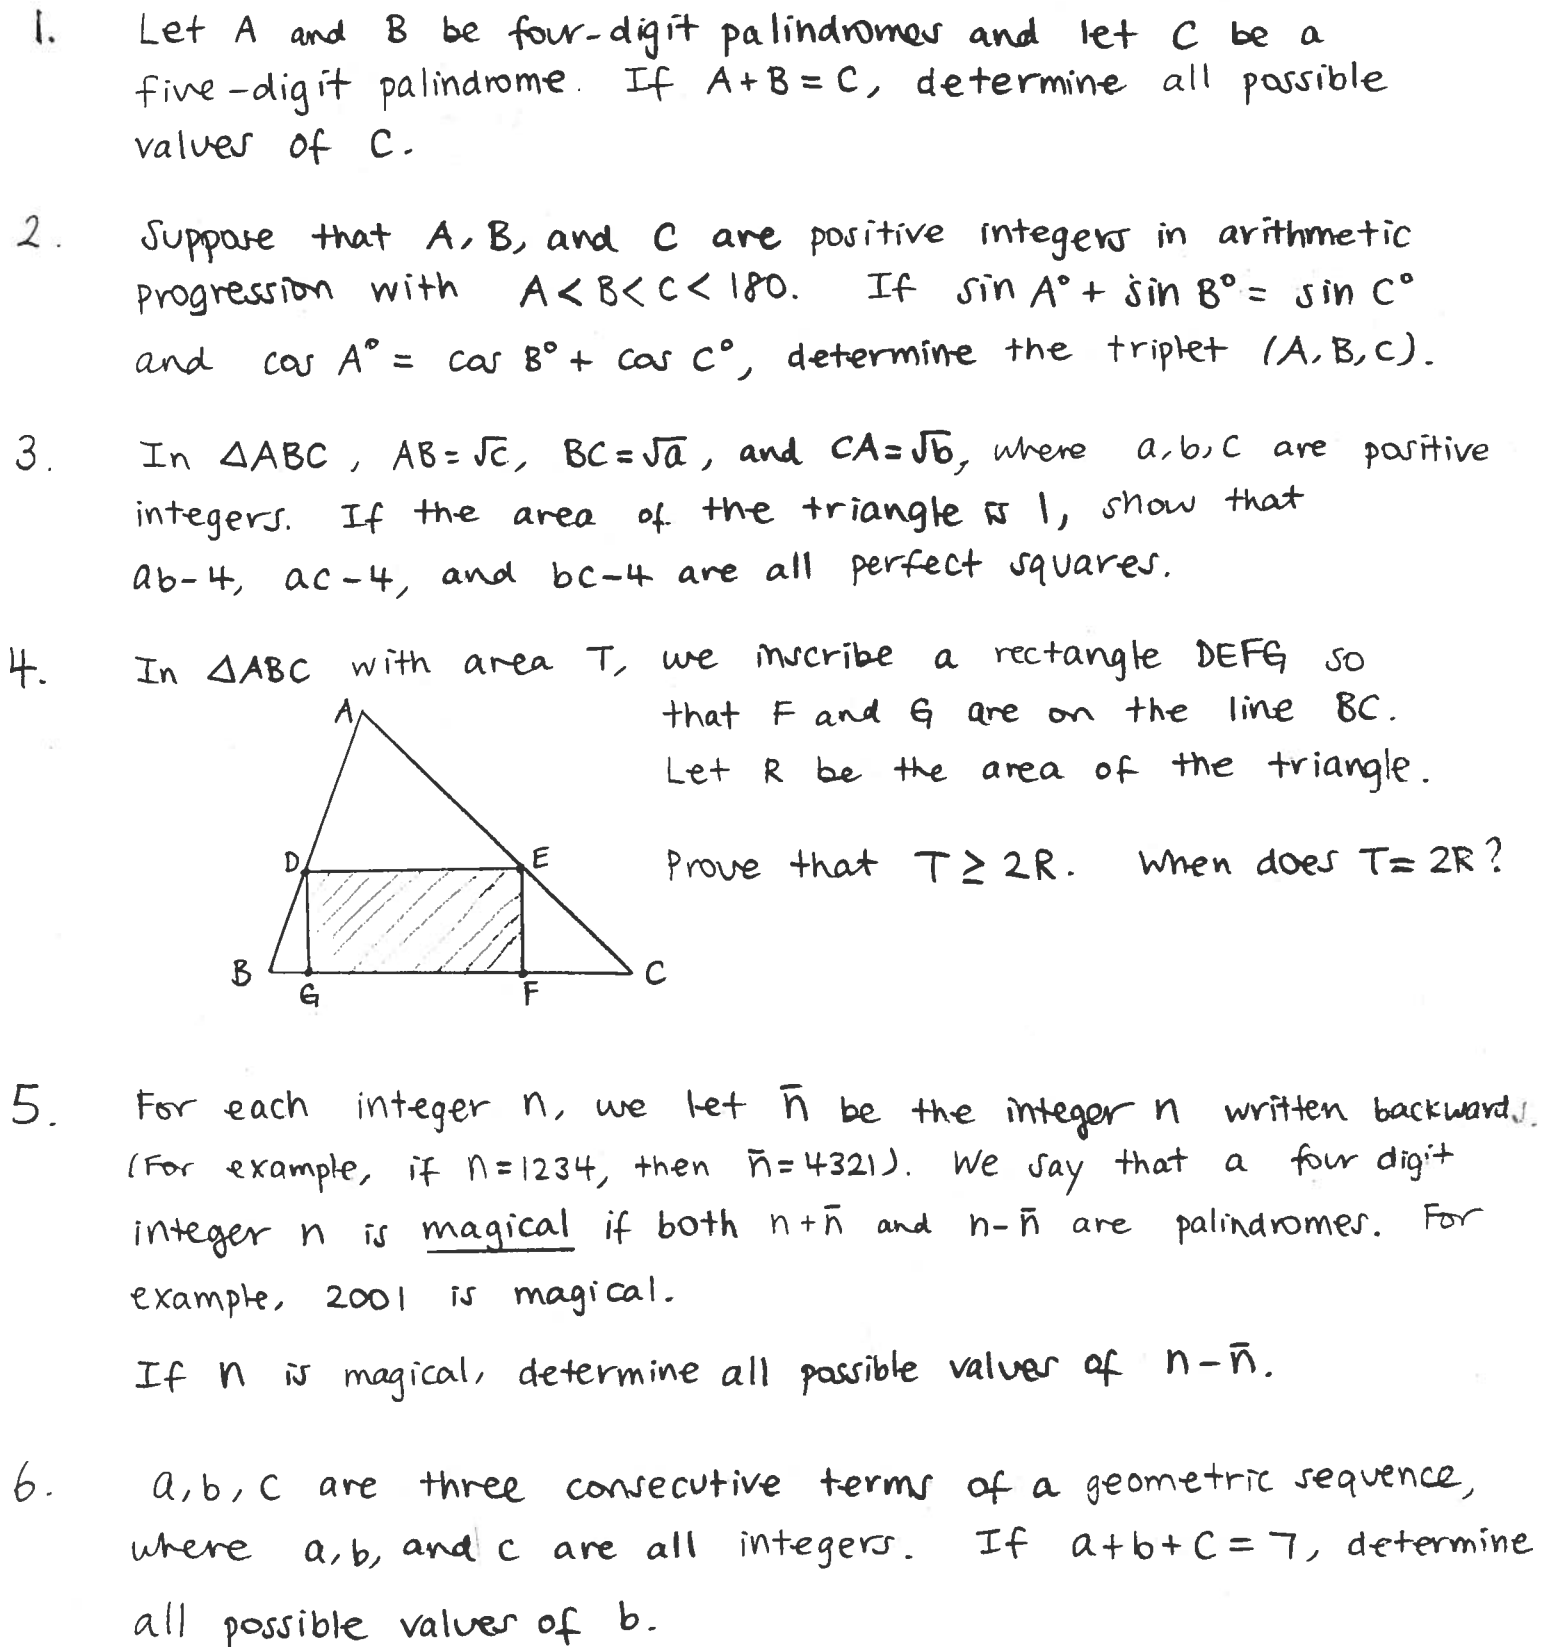 1. Let A and B be four-digit palindromes and let C be a
five-digit palindrome. If A+B=C, determine all possible
values of C.
2. Suppose that A, B, and C are positive integers in arithmetic
progression with A<B<C<180. If sin A° + sin B° = sin C°
and cos A° = cos B° + cos C°, determine the triplet (A,B,C).
3. In △ABC, AB=√c, BC=√a, and CA=√b, where a,b,c are positive
integers. If the area of the triangle is 1, show that
ab-4, ac-4, and bc-4 are all perfect squares.
4. In △ABC with area T, we inscribe a rectangle DEFG so
that F and G are on the line BC.
Let R be the area of the triangle.
Prove that T ≥ 2R. When does T = 2R?
A
D
E
B
G
F
C
5. For each integer n, we let n̄ be the integer n written backwards.
(For example, if n=1234, then n̄=4321). We say that a four digit
integer n is magical if both n+n̄ and n-n̄ are palindromes. For
example, 2001 is magical.
If n is magical, determine all possible values of n-n̄.
6. a,b,c are three consecutive terms of a geometric sequence,
where a,b, and c are all integers. If a+b+c=7, determine
all possible values of b.